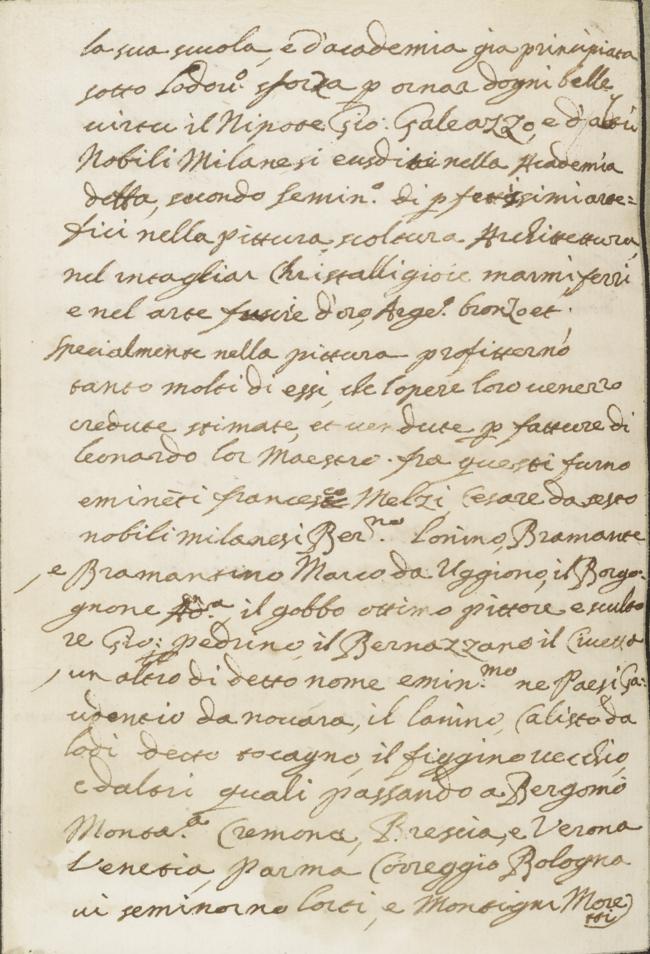 la sua scuola, e d'academia gia principiata
sotto Lodou.º sforza p ornar d'ogni belle
uirtu il Nipote Gio: Galeazzo, e d'altri
Nobili Milanesi euditi nella Academia
detta, secondo semin.º di pfettissimi arte=
fici nella pittura, scoltura Architettura,
nel intagliar Christalli gioie marmi, ferri
e nel arte fusire d'oro, Arge.º bronzo et.
specialmente nella pittura profitterno
tanto molti di essi, che l'opere loro uenerro
credute stimate, et uendute p fatture di
leonardo lor Maestro. fra questi furno
eminēti francesco Melzi, Cesare da sesto
nobili milanesi Ber.no Louino, Bramante
, e Bramantino Marco da Uggiono, il Borgo-
gnone And.a il gobbo ottimo pittore e sculto
re Gio: pedrino, il Bernazzano il Ciuerra
, un altro di detto nome emin.mo ne Paesi Ga:
udentio da nouara, il lanino, Calisto da
lodi detto tocagno, il figgino uecchio,
e d'altri quali passando a Bergomo
Monta.a Cremona, Brescia, e Verona
Venetia, Parma Correggio Bologna
ui seminorno l'arti, e Montigni More
tti